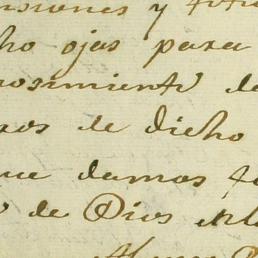 nsiones y
ho ojas para
nosimiento de
ros de dicho
que damos fe
de Dios